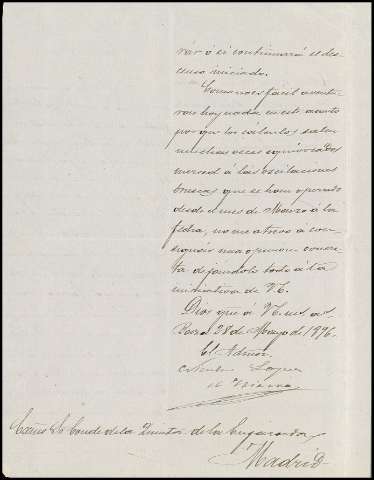 rár ó si continuará el des-
censo iniciado.
Como no es fácil aventu-
rar hoy nada en este asunto
por que los cálculos salen
muchas veces equivocados
merced á las oscilaciones
bruscas que se han operado
desde el mes de Marzo á la
fecha, no me atrevo a con-
signar una opinion concre-
ta dejándolo todo á la
iniciativa de V.E.
Dios gue á V.E. m. a.
28 de Mayo de 1896.
El Admor.
Excmo Sr Conde de la Quinta de la Enjarada,
Madrid